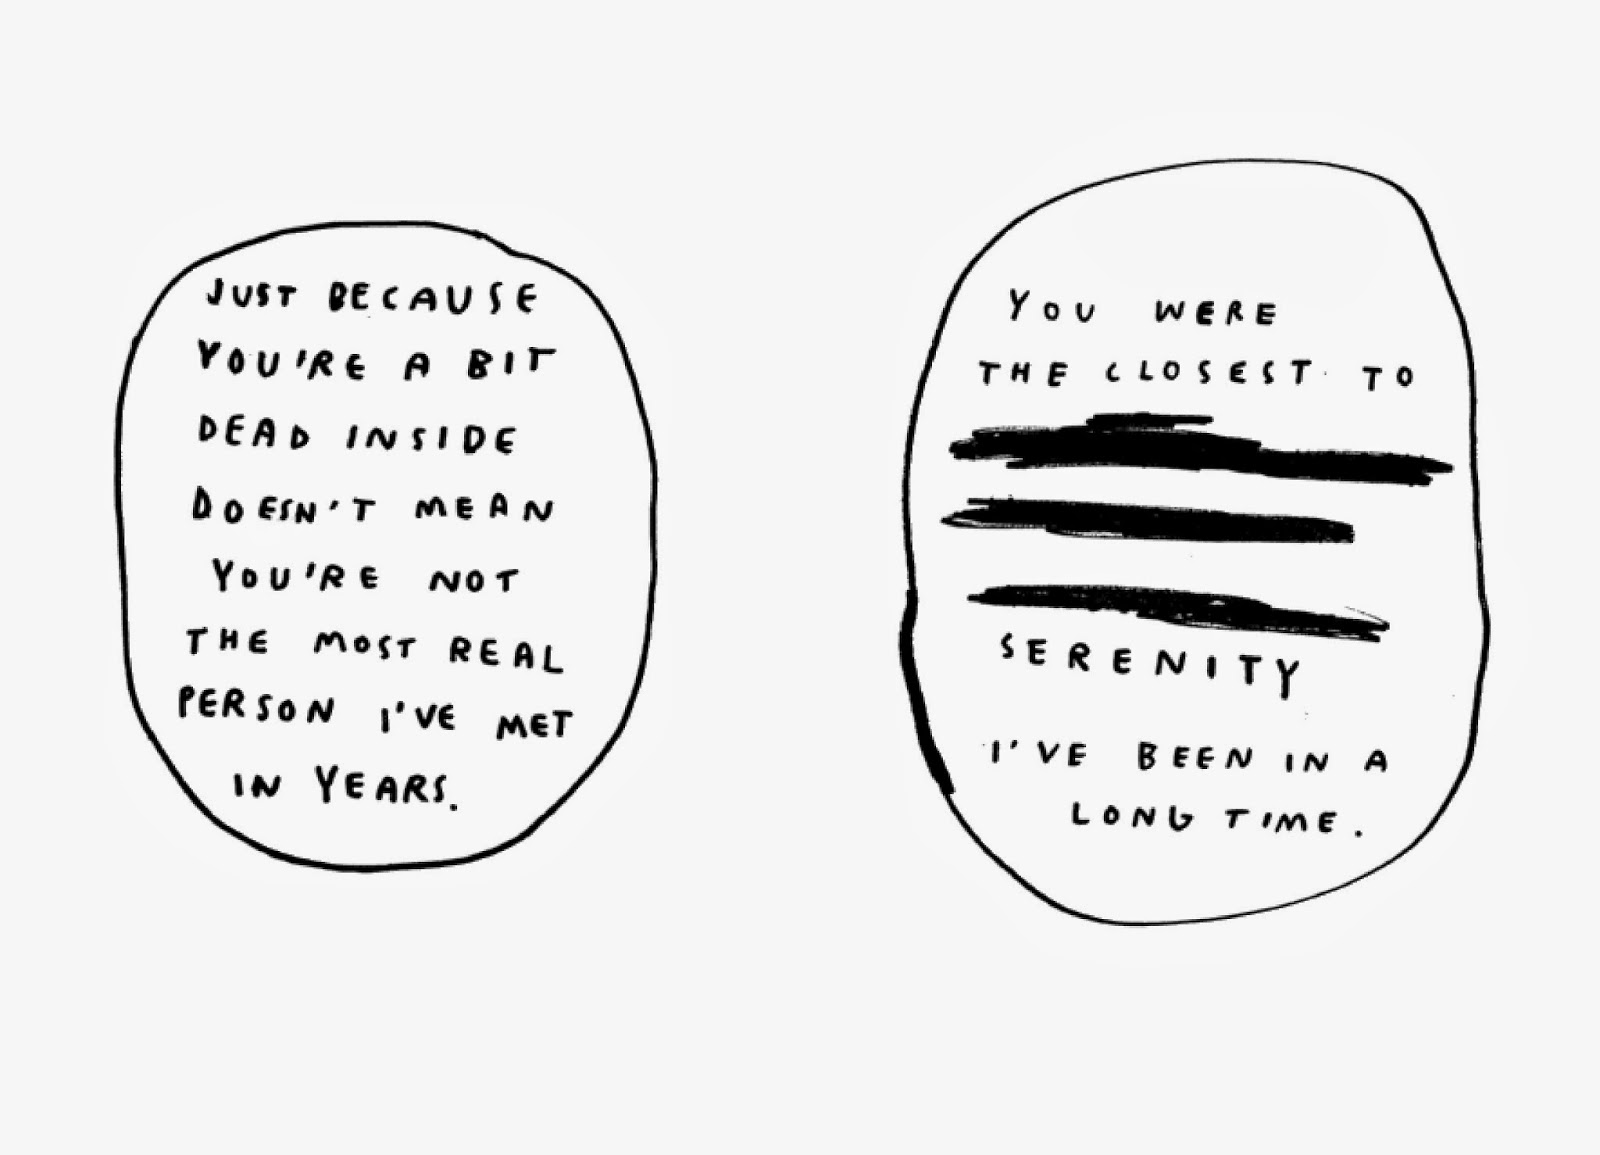 JUST BECAUSE
YOU'RE A BIT
DEAD INSIDE
DOESN'T MEAN
YOU'RE NOT
THE MOST REAL
PERSON I'VE MET
IN YEARS.
YOU WERE
THE CLOSEST TO
SERENITY
I'VE BEEN IN A
LONG TIME.